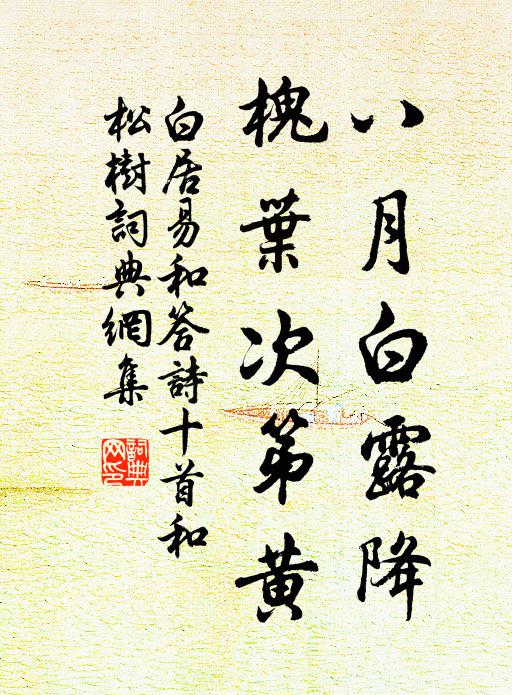 八月白露降
槐葉次第黄
白居易和答詩十首和
松樹詞典網集
詞典
网印